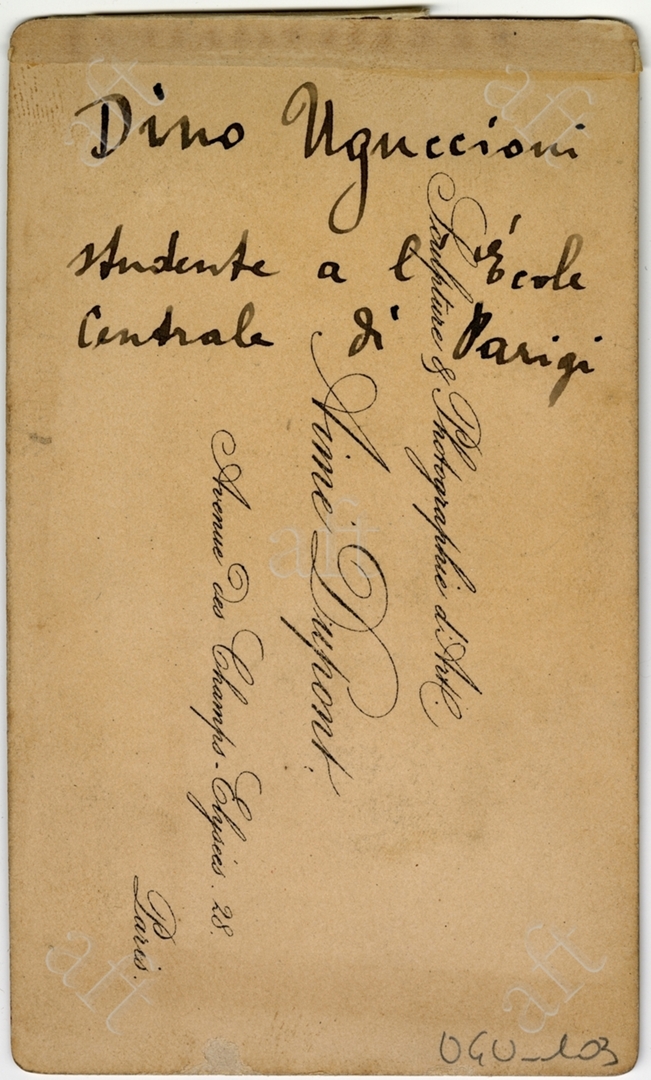 Dino Uguccioni
studente a l'École
Centrale di Parigi
Sculpture & Photographie d'Art
Aimé Dupont.
Avenue des Champs-Elysées. 28.
Paris.
UGU-103
aft
aft
aft
aft
aft